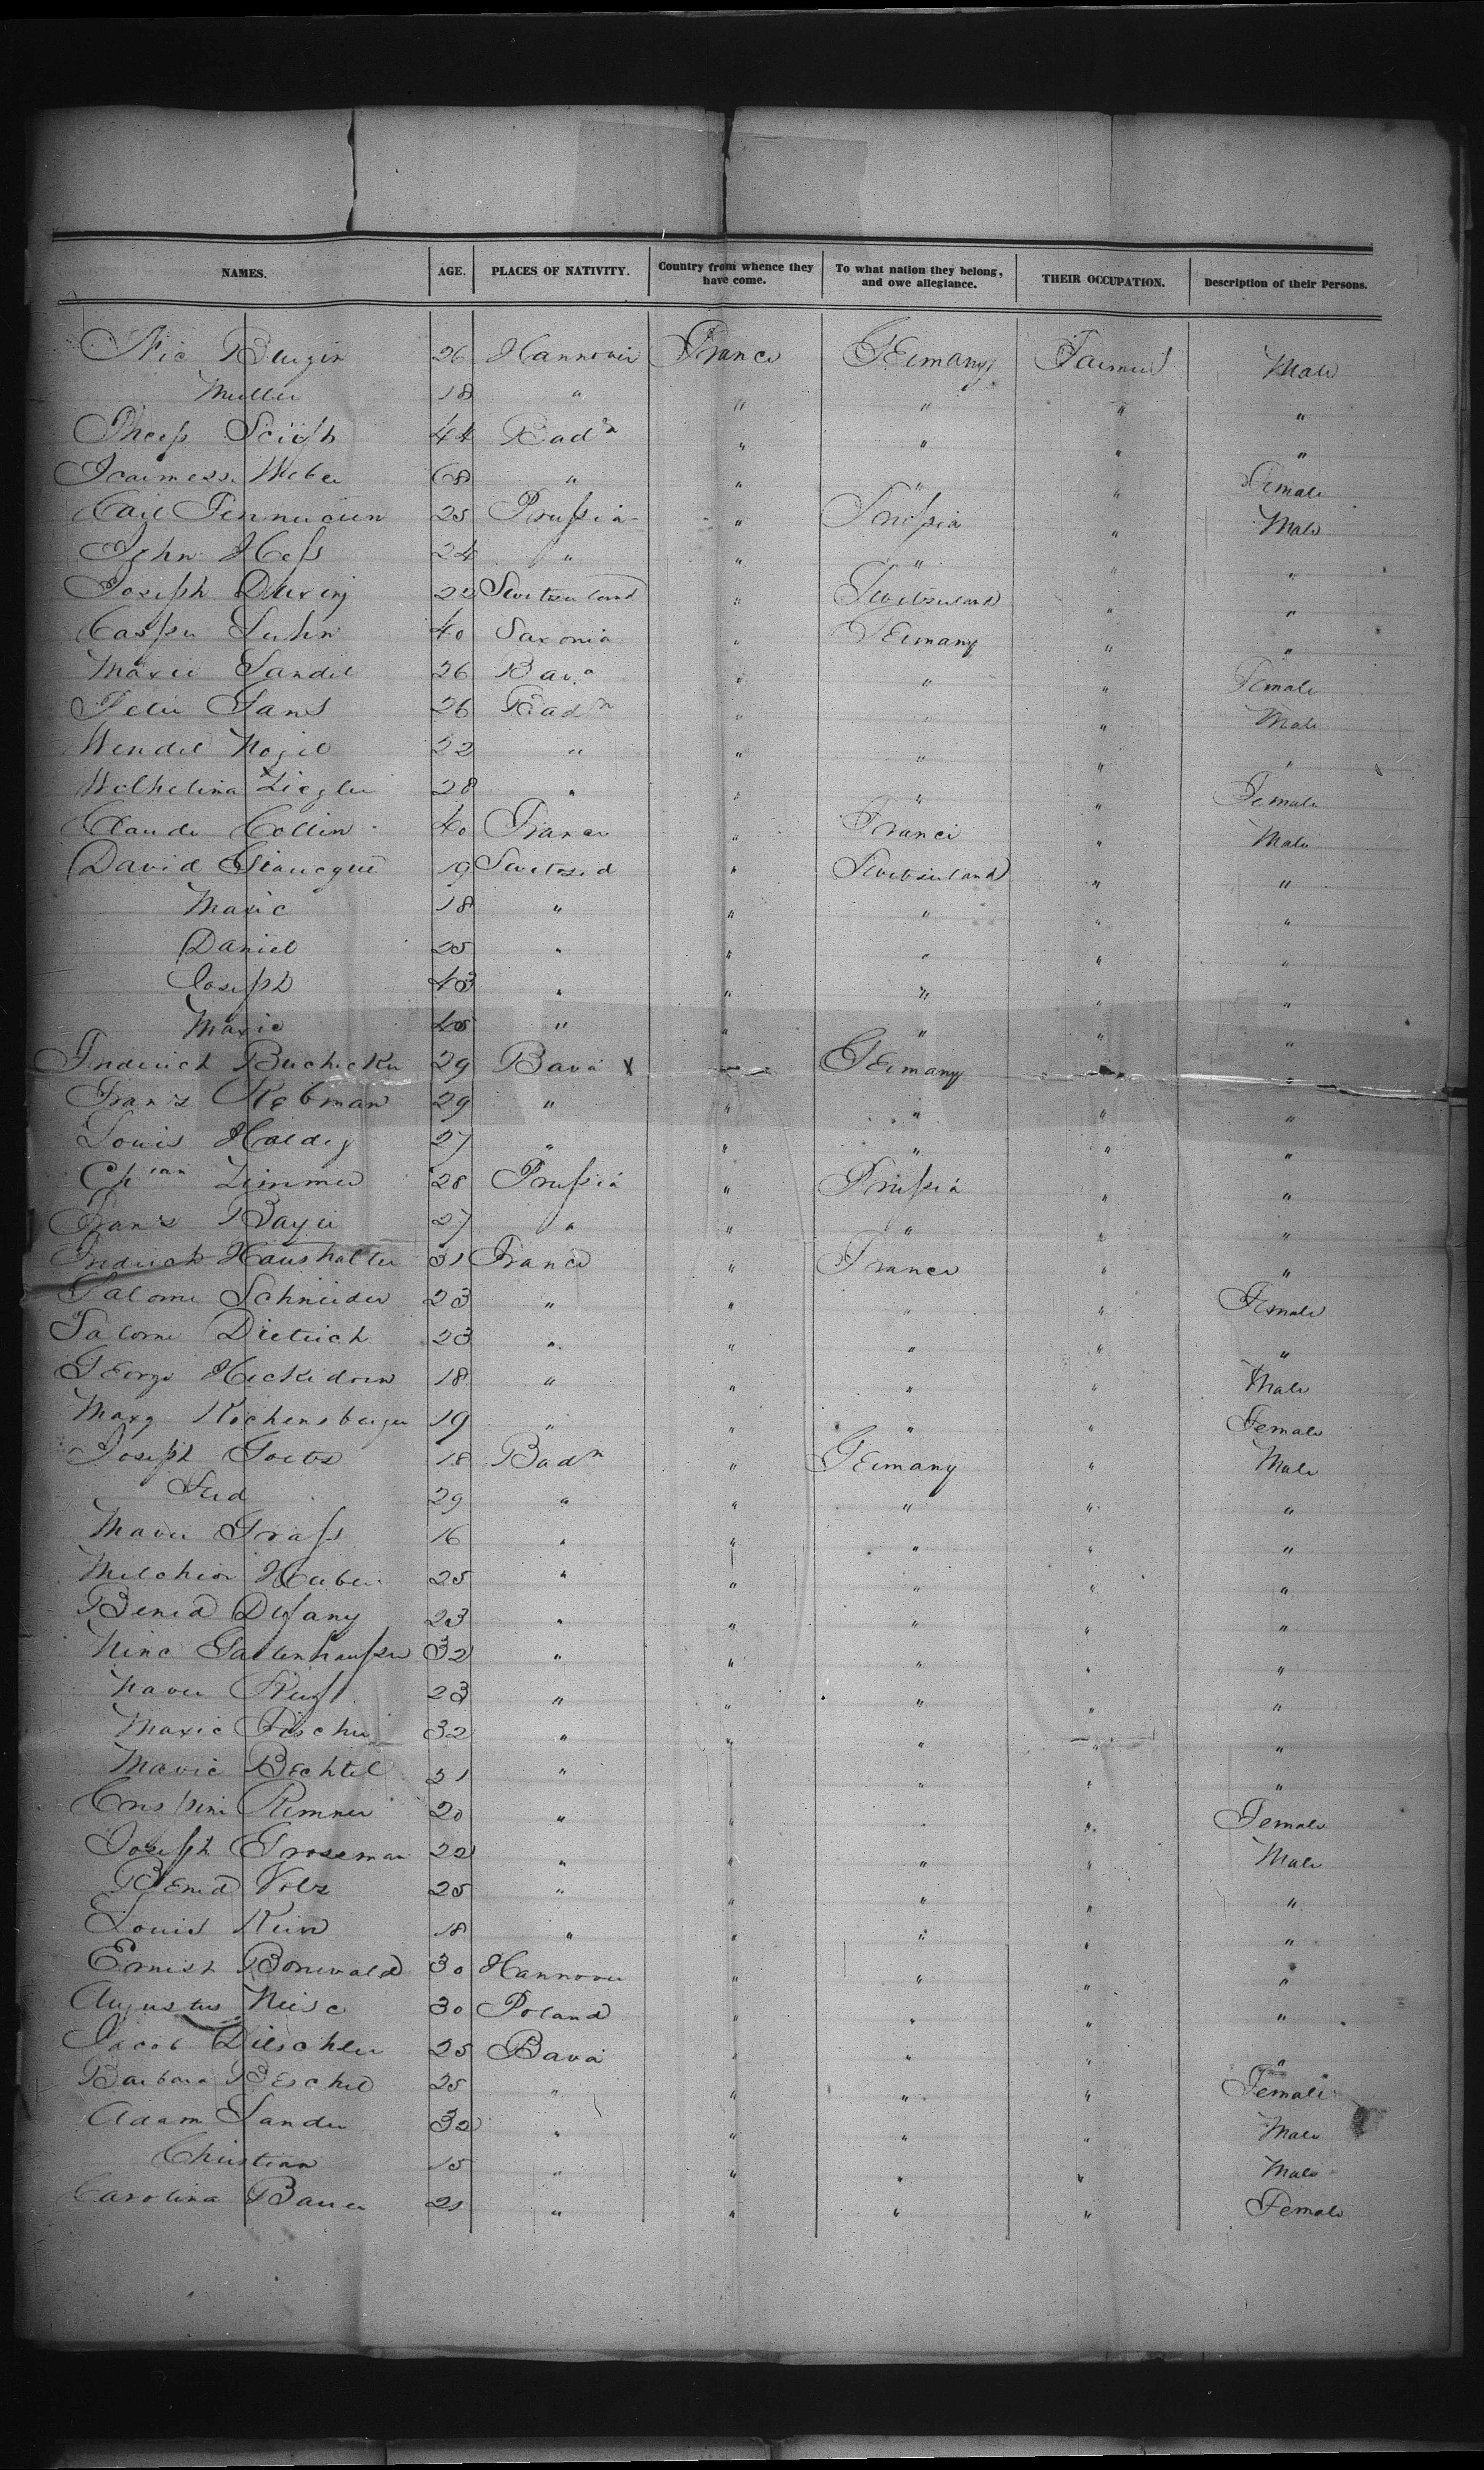 NAMES. AGE. PLACES OF NATIVITY. Country from whence they have come. To what nation they belong, and owe allegiance. THEIR OCCUPATION. Description of their Persons.
Nic 26 Hannover France Germany Farmer Male
Muller 18 " " " " "
44 Badn " " " "
Weber 68 " " " " Female
Carl 25 Prussia " Prussia " Male
John Hess 24 " " " " "
Joseph 22 Switzerland " Switzerland " "
Casper Luhn 40 Saxonia " Germany " "
Marie Sandel 26 Bava " " " Female
26 Badn " " " Male
Wendel 22 " " " " "
Wilhelina Ziegler 28 " " " " Female
Claude Collin 40 France " France " Male
David Giaucque 19 Switzd " Switzerland " "
Marie 18 " " " " "
Daniel 25 " " " " "
Joseph 43 " " " " "
Marie 45 " " " " "
Frederich 29 Bava x " Germany " "
Franz Rebman 29 " " " " "
Louis Haldy 27 " " " " "
Chian Zimmer 28 Prussia " Prussia " "
Franz Bayer 27 " " " " "
Fredrich Haushalter 31 France " France " "
Salome Schneider 23 " " " " Female
Salome Dietrich 23 " " " " "
George Heckedorn 18 " " " " Male
Mary Kochensberger 19 " " " " Female
Joseph Goetz 18 Badn " Germany " Male
Ferd 29 " " " " "
Grass 16 " " " " "
Melchior Huber 25 " " " " "
Bened 23 " " " " "
32 " " " " "
23 " " " " "
Marie Fischer 32 " " " " "
Marie Bechtel 21 " " " " "
Crispine 20 " " " " Female
Joseph Groseman 22 " " " " Male
Bened Volz 25 " " " " "
Louis 18 " " " " "
Ernist Bonewald 30 Hannover " " " "
Augustus 30 Poland " " " "
Jacob 25 Bava " " " "
Barbara 25 " " " " Female
Adam Sander 32 " " " " Male
Christian 15 " " " " Male
Carolina Bauer 21 " " " " Female